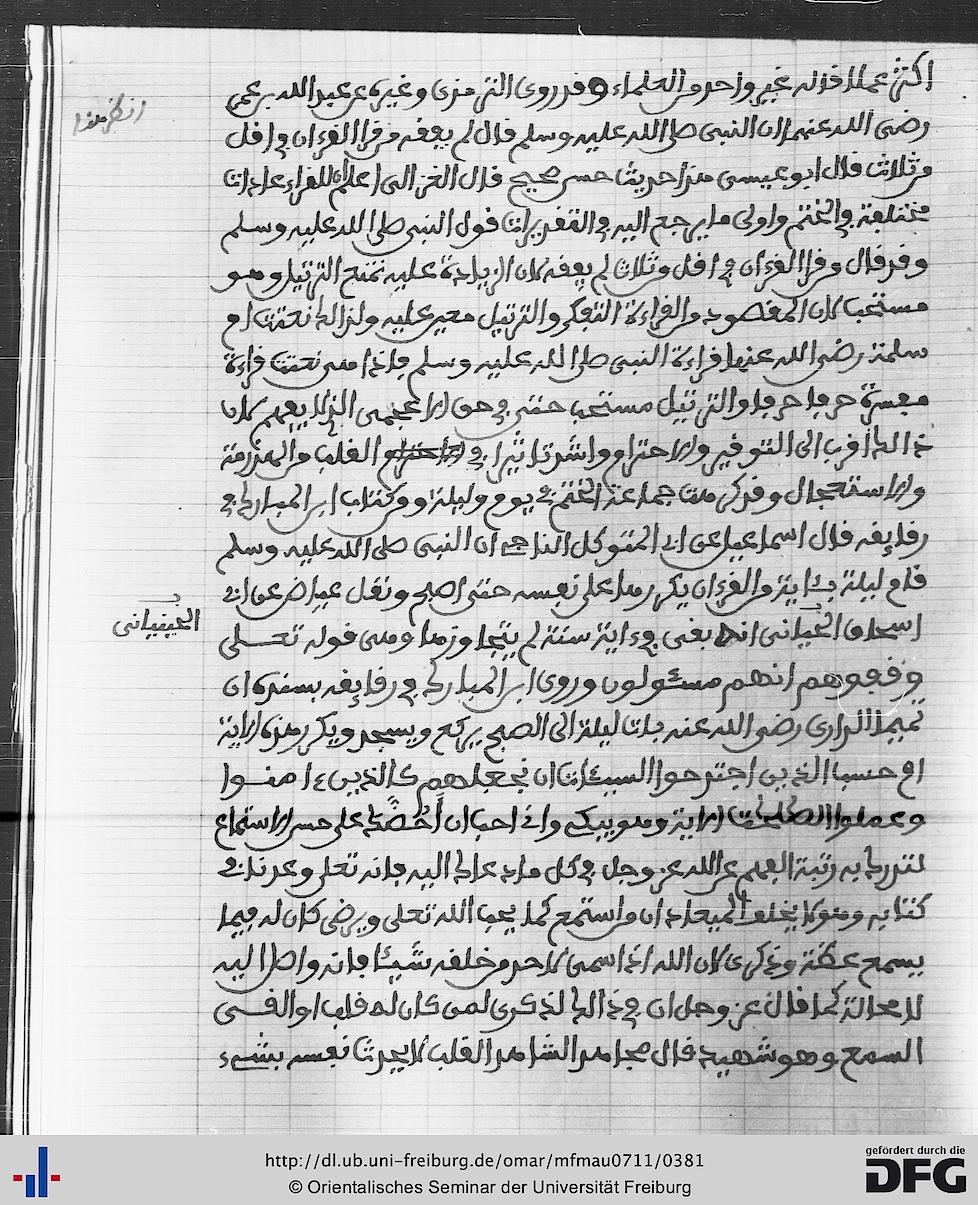 اكثر عملا قاله غير واحد من العلماء وقد روى الترمذي وغيره عن عبد الله بن عمر
انظر هذا
رضي الله عنهما ان النبي صلى الله عليه وسلم قال لم يفقه من قرا القرءان في اقل
من ثلاث قال ابو عيسى هذا حديث حسن صحيح قال الغزالي اعلم ان للقراء عادات
مختلفة في الختم واولى ما يرجع اليه في التقديرات قول النبي صلى الله عليه وسلم
وقد قال من قرا القرءان في اقل من ثلاث لم يفقه لان الزيادة عليه تمنع الترتيل وهو
مستحب لان المقصود من القراءة التفكر والترتيل معين عليه ولذالك نعتت ام
سلمة رضي الله عنها قراءة النبي صلى الله عليه وسلم فاذا هي تنعت قراءة
مفسرة حرفا حرفا والترتيل مستحب حتى في حق الاعجمي الذي لا يفهم لان
ذالك اقرب الى التوفير والاحترام واشد تاثيرا في القلب من الهذرمة
والاستعجال وقد كرهت جماعة الختم في يوم وليلة ومن كتاب ابن المبارك في
رقايقه قال اسماعيل عن ابي المتوكل الناجي ان النبي صلى الله عليه وسلم
قام ليلة بئاية من القرءان يكررها على نفسه حتى اصبح ونقل عياض عن ابي
الجبنياني
اسحاق الجبنياني انه بقي في ءاية سنة لم يتجاوزها وهي قوله تعلى
وقفوهم انهم مسئولون وروى ابن المبارك في رقايقه بسنده ان
تميما الداري رضي الله عنه بات ليلة الى الصبح يركع ويسجد ويكرر هذه الاية
ام حسب الذين اجترحوا السيئات ان نجعلهم كالذين ءامنوا
وعملوا الصلحت الاية وهو يبكي واني احب ان احضك على حسن الاستماع
لتدرك به رتبة الفهم عن الله عز وجل في كل ما دعاك اليه فانه تعلى وعدنا في
كتابه وهو لا يخلف الميعاد ان من استمع كما يحب الله تعلى ويرضى كان له فيما
يسمع عظة وذكرى لان الله اذا سمى لاحد من خلقه شيئا فانه واصل اليه
لا محالة كما قال عز وجل ان في ذالك لذكرى لمن كان له قلب او القى
السمع وهو شهيد قال مجاهد الشاهد القلب لا يحدث نفسه بشيء
http://dl.ub.uni-freiburg.de/omar/mfmau0711/0381
© Orientalisches Seminar der Universität Freiburg
gefördert durch die
DFG